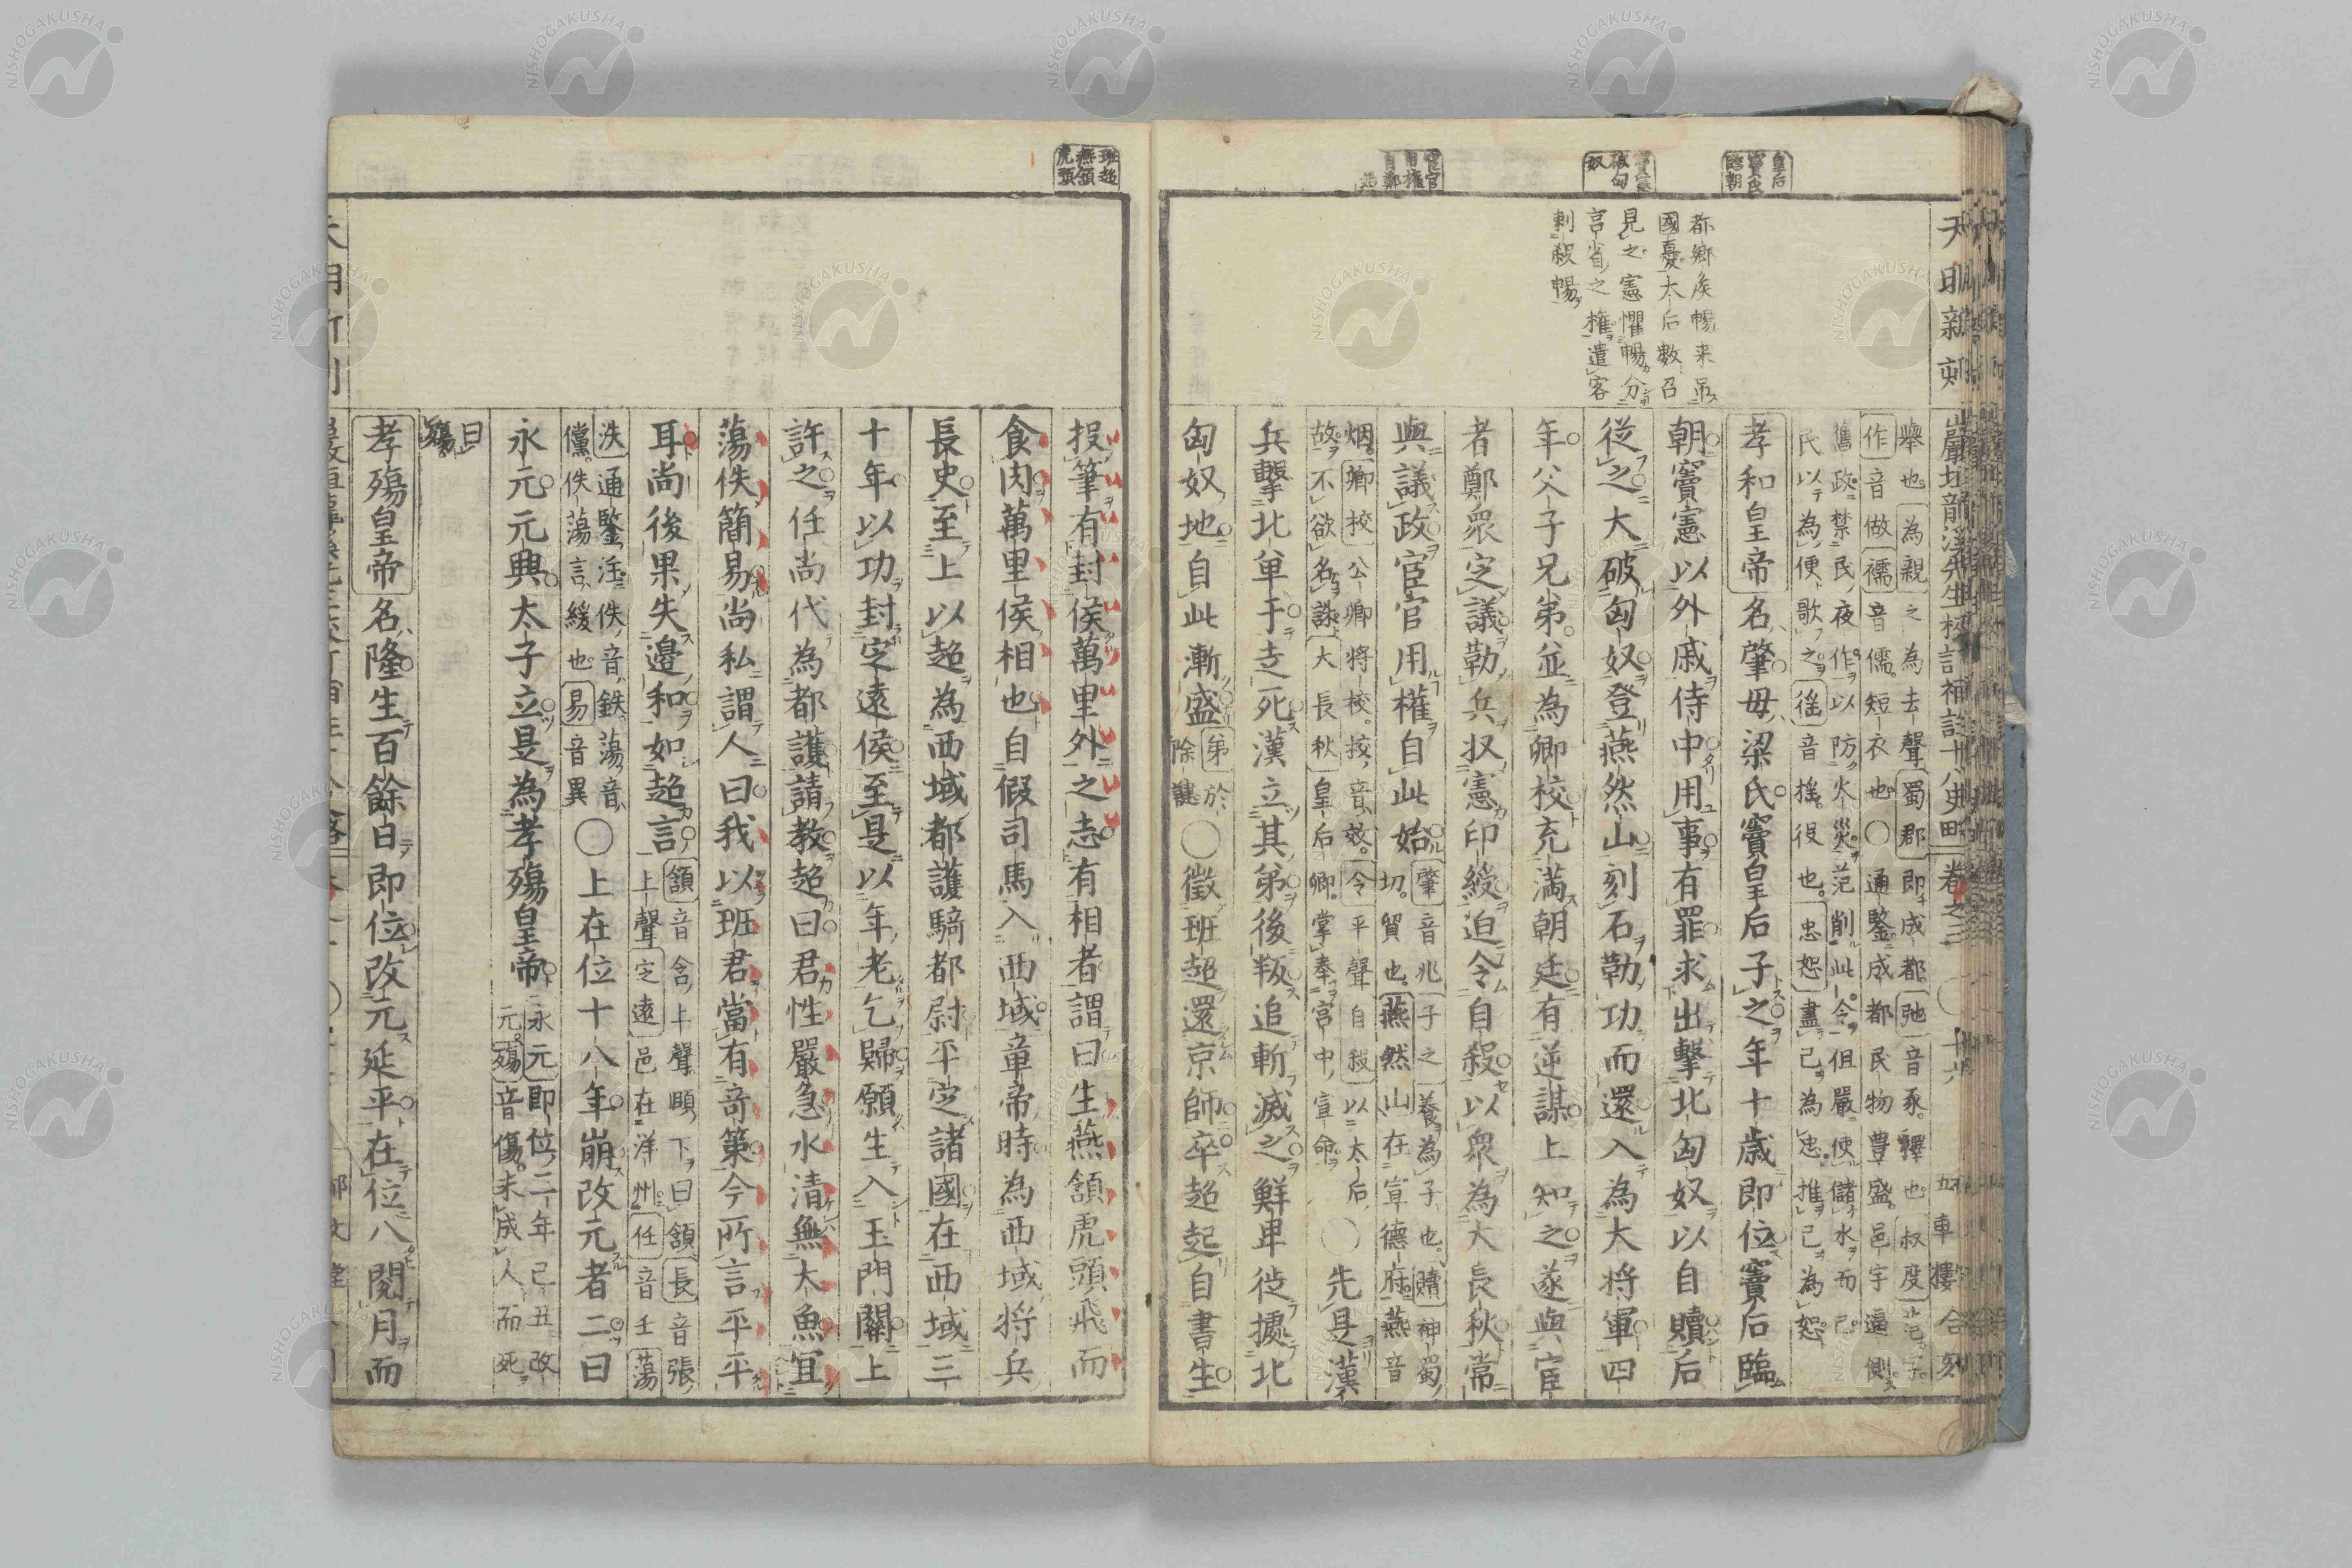 天明新刻
巖垣龍溪先生標記補註十八史略 卷之三
五車樓合刻
皇后竇氏臨朝
竇憲破匈奴
宦官用權自鄭
都鄉侯暢来吊
國憂太后數召
見之憲懼暢分
宮省之權遣客
刺殺暢
舉也為親之為去聲蜀郡即成都弛音豕釋也叔度范子
作音做襦音儒短衣也〇通鑒成都民物豊盛邑宇逼側
舊政禁民夜作以防火災范削此令但嚴使儲水而已
民以為便歌之徭音揺役也忠恕盡己為忠推己為恕
孝和皇帝名肇母梁氏竇皇后子之年十歳即位竇后臨
朝竇憲以外戚侍中用事有罪求出擊北匈奴以自贖后
從之大破匈奴登燕然山刻石勒功而還入為大将軍四
年父子兄弟並為卿校充満朝廷有逆謀上知之遂與宦
者鄭衆定議勒兵収憲印綬迫令自殺以衆為大長秋常
與議政宦官用權自此始肇音兆子之養為子也贖神蜀
切貿也燕然山在宣德府燕音
烟卿校公卿将校校音效令平聲自殺以太后
故不欲名誅大長秋皇后卿掌奉宮中宣命〇先是漢
兵擊北単于走死漢立其弟後叛追斬滅之鮮卑徙據北
匈奴地自此漸盛弟於
除鞬〇徵班超還京師卒超起自書生
班超燕頷虎頭
投筆有封侯萬里外之志有相者謂曰生燕頷虎頭飛而
食肉萬里侯相也自假司馬入西域章帝時為西域将兵
長史至上以超為西域都護騎都尉平定諸國在西域三
十年以功封定遠侯至是以年老乞歸願生入玉門關上
許之任尚代為都護請教超曰君性嚴急水清無大魚宜
蕩佚簡易尚私謂人曰我以班君當有奇策今所言平平
耳尚後果失邊和如超言頷音含上聲頤下曰頷長音張
上聲定遠邑在洋州任音壬蕩
泆通鑒注佚音鉄蕩音
儻佚蕩言緩也易音異〇上在位十八年崩改元者二曰
永元元興太子立是為孝殤皇帝永元即位二年己丑改
元殤音傷未成人而死
曰
殤
孝殤皇帝名隆生百餘日即位改元延平在位八閱月而